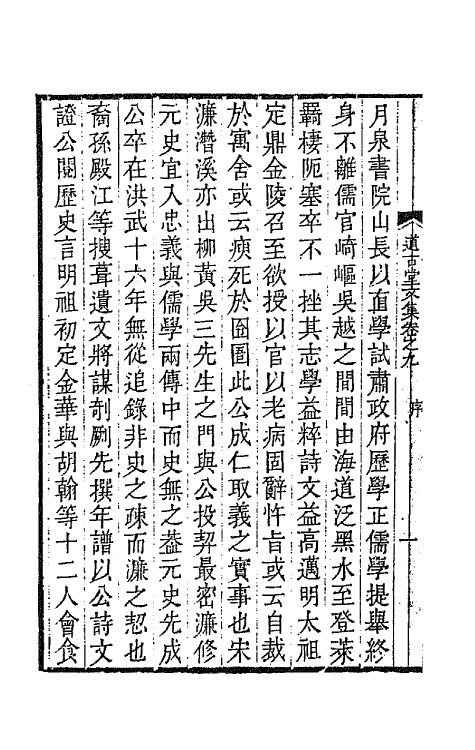 道古堂文集卷之九　序　一
月泉書院山長以直學試肅政府歷學正儒學提舉終
身不離儒官崎嶇吳越之間間由海道泛黑水至登萊
羈棲阨塞卒不一挫其志學益粹詩文益高邁明太祖
定鼎金陵召至欲授以官以老病固辭忤旨或云自裁
於寓舍或云瘐死於囹圄此公成仁取義之實事也宋
濂潛溪亦出柳黃吳三先生之門與公投契最密濂修
元史宜入忠義與儒學兩傳中而史無之葢元史先成
公卒在洪武十六年無從追錄非史之疎而濂之恝也
裔孫殿江等搜葺遺文將謀剞劂先撰年譜以公詩文
證公閱歷史言明祖初定金華與胡翰等十二人會食